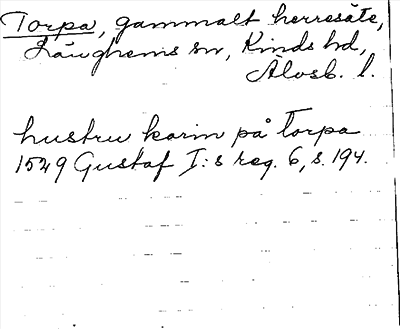 Torpa, gammalt herresäte,
Länghems sn, Kinds hd,
Älvsb. l.
hustru karin på Torpa
1549 Gustaf I:s reg. 6, s. 194.